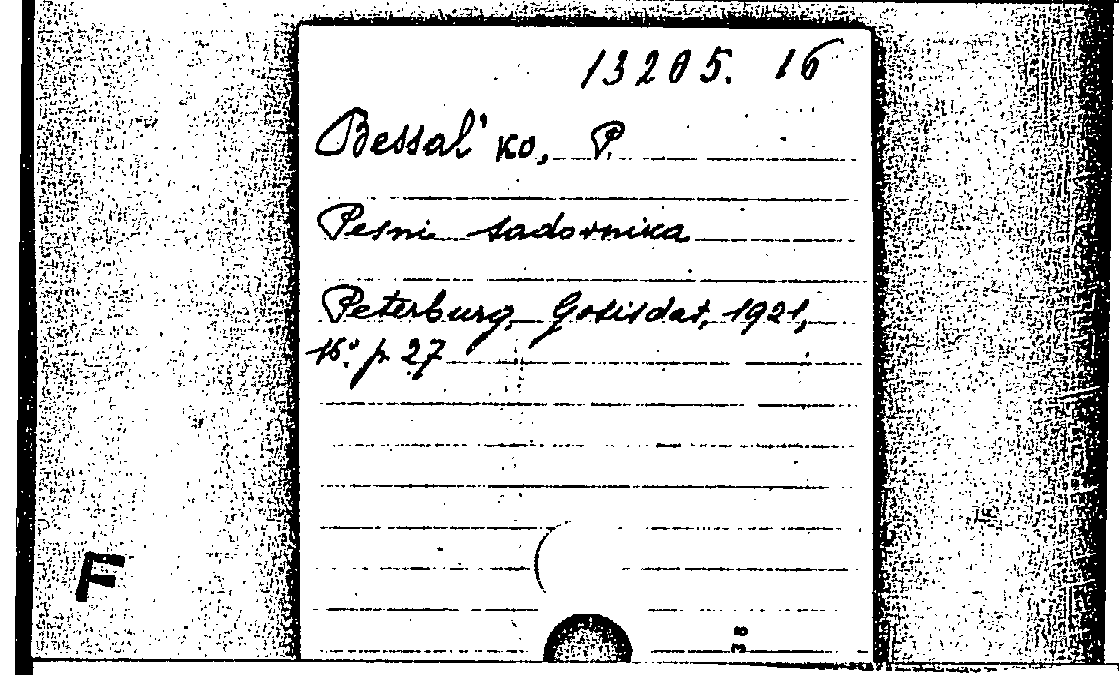 13205. 16
Bessal'ko, P.
Pesni sadovnika
Peterburg, Gosisdat, 1921,
16° p. 27
F